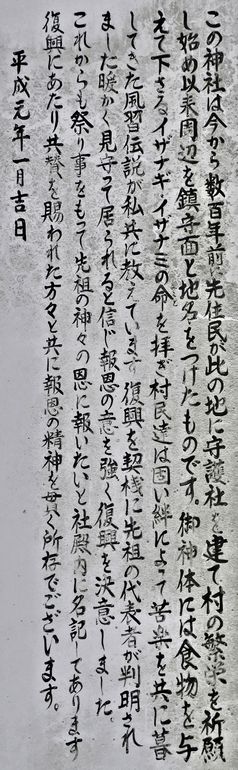 この神社は今から数百年前に先住民が此の地に守護社を建て村の繁栄を祈願
し始め以来周辺を鎮守面と地名をつけたものです。御神体には食物を与
えて下さるイザナギ、イザナミの命を拝ぎ村民達は固い絆によって苦楽を共に暮
してきた風習伝説が私共に教えています。復興を契機に先祖の代表者が判明され
ました暖かく見守って居られると信じ報恩の意を強く復興を決意しました。
これからも祭り事をもって先祖の神々の恩に報いたいと社殿内に名記してあります
復興にあたり共賛を賜われた方々と共に報恩の精神を貫く所存でございます。
平成元年一月吉日